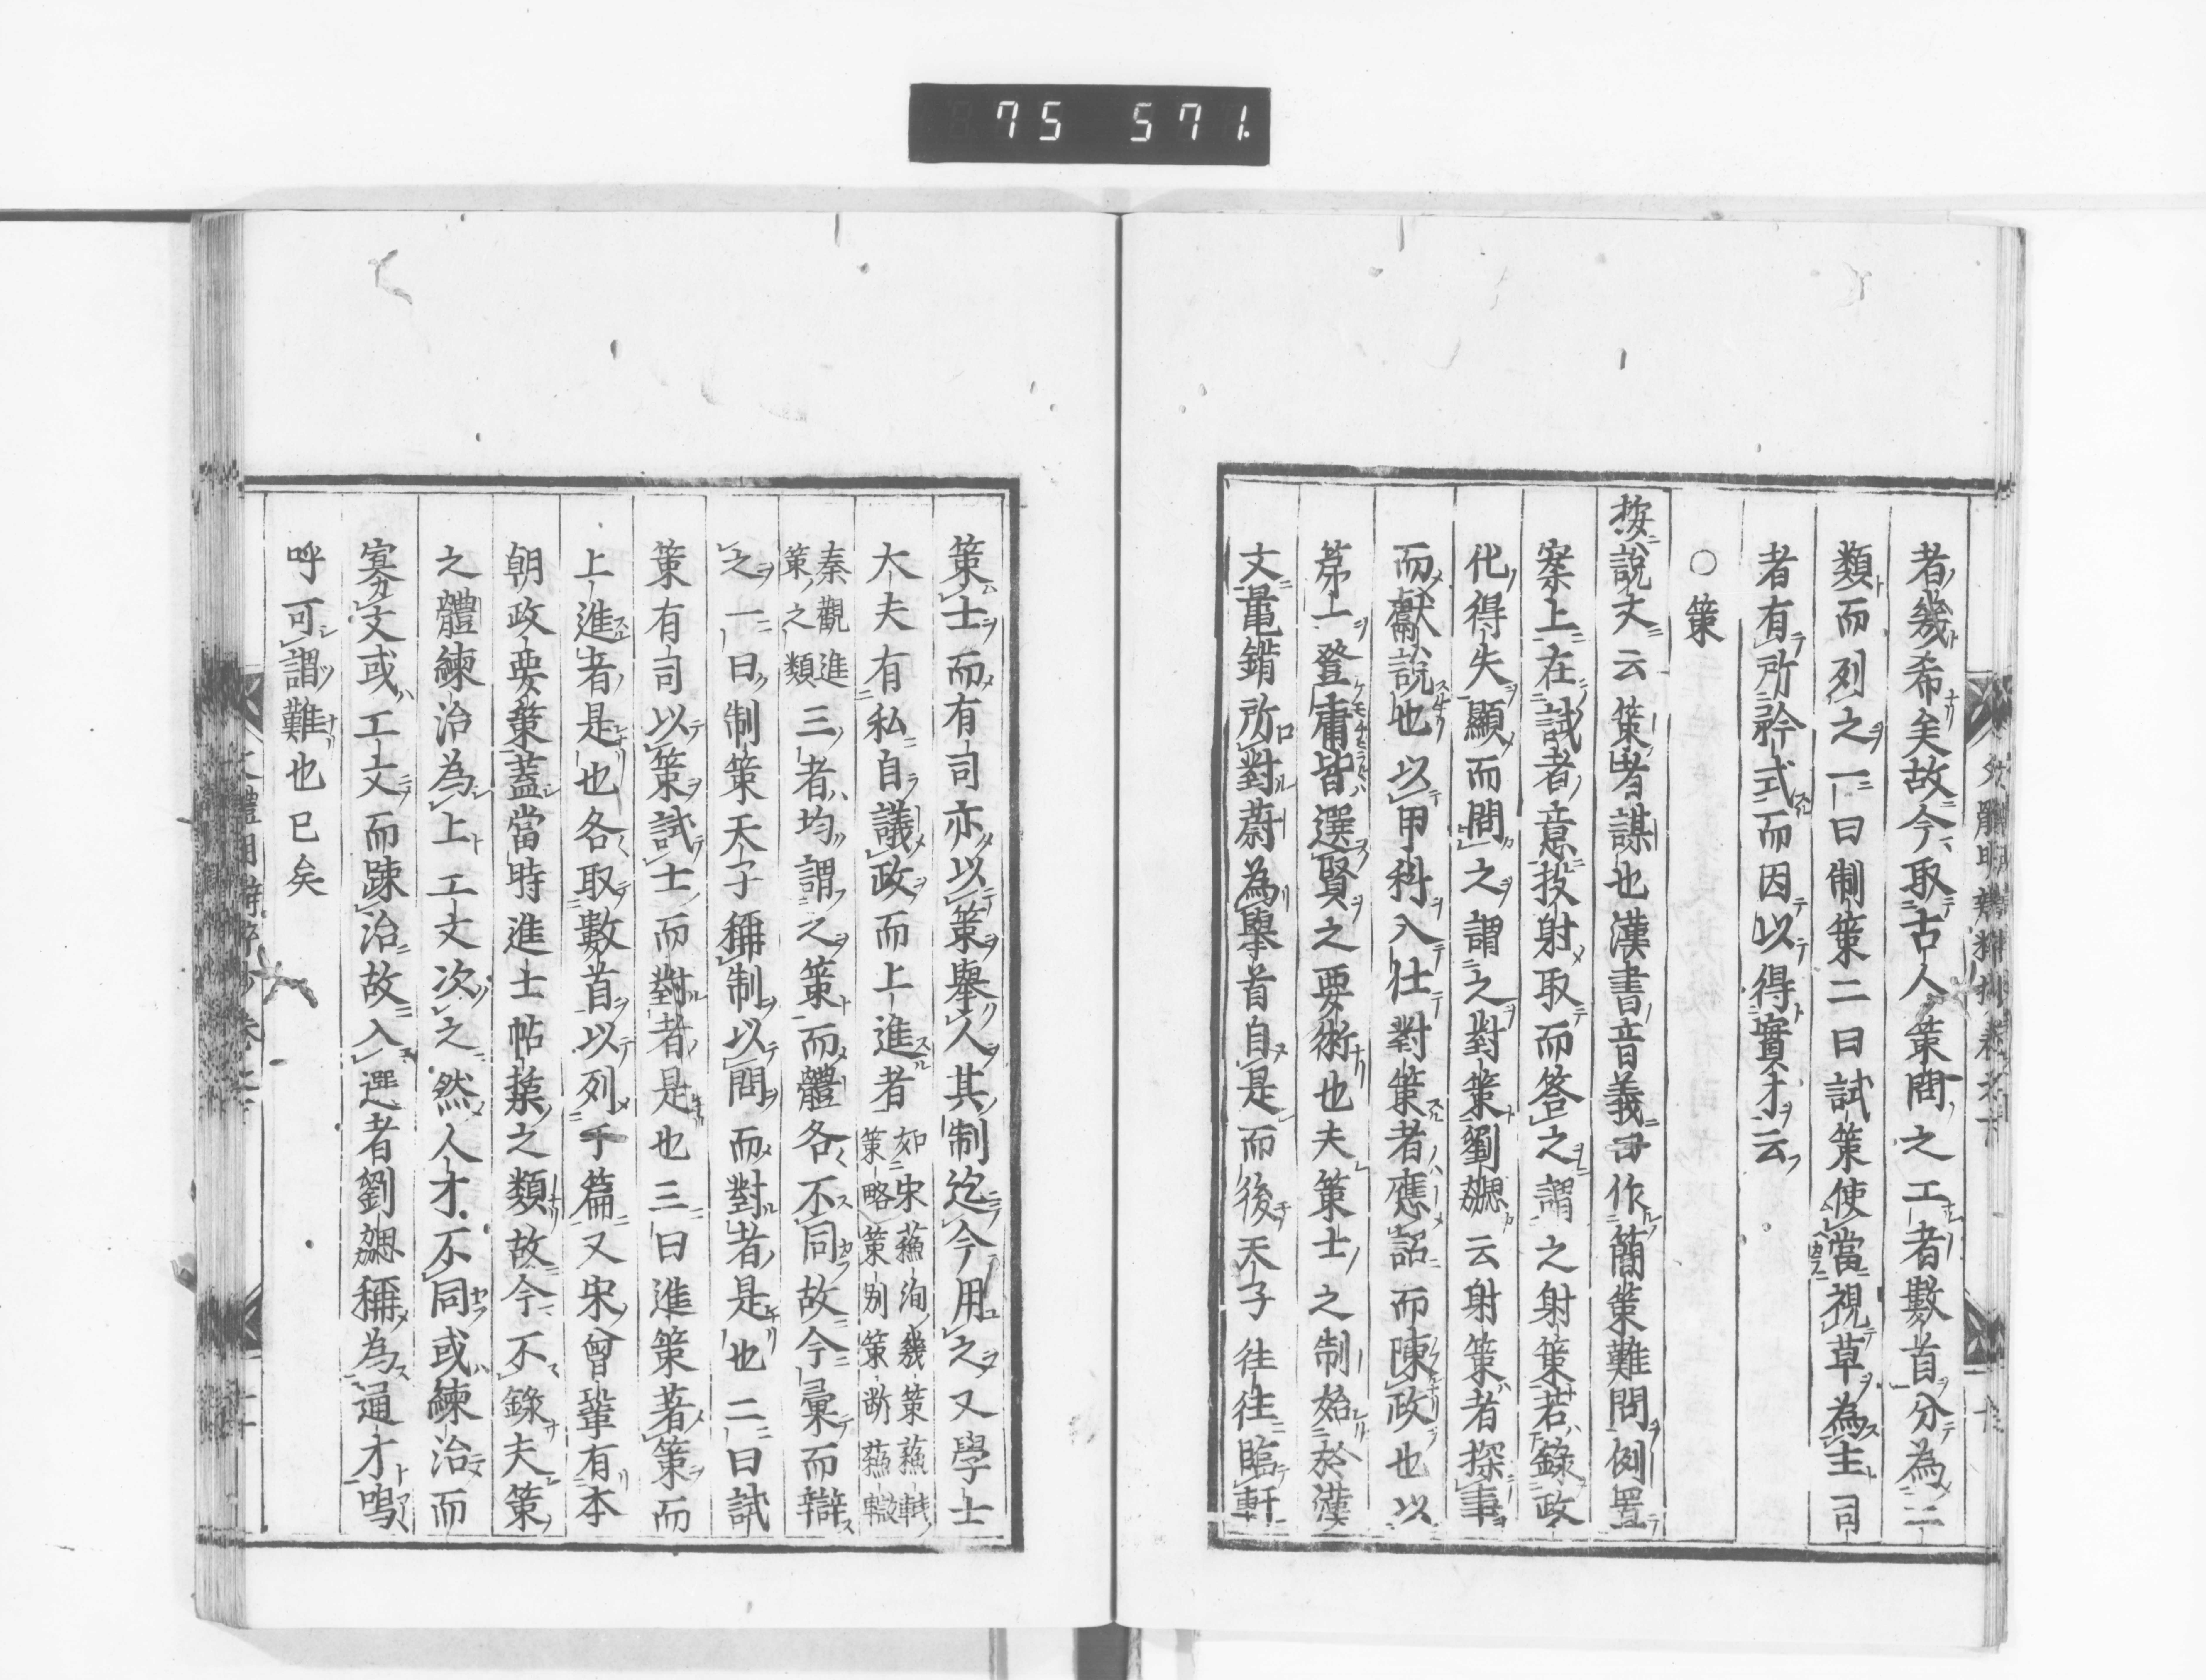 75 571.
者幾希矣故今取古人策問之工者數首分為二
類而列之一曰制策二曰試策使當視草為主司
者有所矜式而因以得實才云
○策
按說文云策者謀也漢書音義曰作簡策難問例置
案上在試者意投射取而答之謂之射策若錄政
化得失顯而問之謂之對策劉勰云射策者探事
而獻說也以甲科入仕對策者應詔而陳政也以
苐一登庸皆選賢之要術也夫策士之制始於漢
文鼂錯所對蔚為擧首自是而後天子往往臨軒
策士而有司亦以策擧人其制迄今用之又學士
大夫有私自議政而上進者
如宋蘓洵幾策蘓軾
策略策別策斷蘓轍
秦觀進
策之類
三者均謂之策而體各不同故今彙而辯
之一曰制策天子稱制以問而對者是也二曰試
策有司以策試士而對者是也三曰進策著策而
上進者是也各取數首以列于篇又宋曾鞏有本
朝政要策蓋當時進士帖括之類故今不錄夫策
之體練治為上工文次之然人才不同或練治而
寡文或工文而踈治故入選者劉勰稱為通才嗚
呼可謂難也已矣